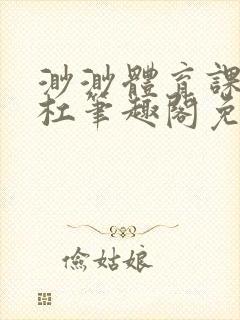 渺渺體育課
杜筆趣閣免
儉姑娘